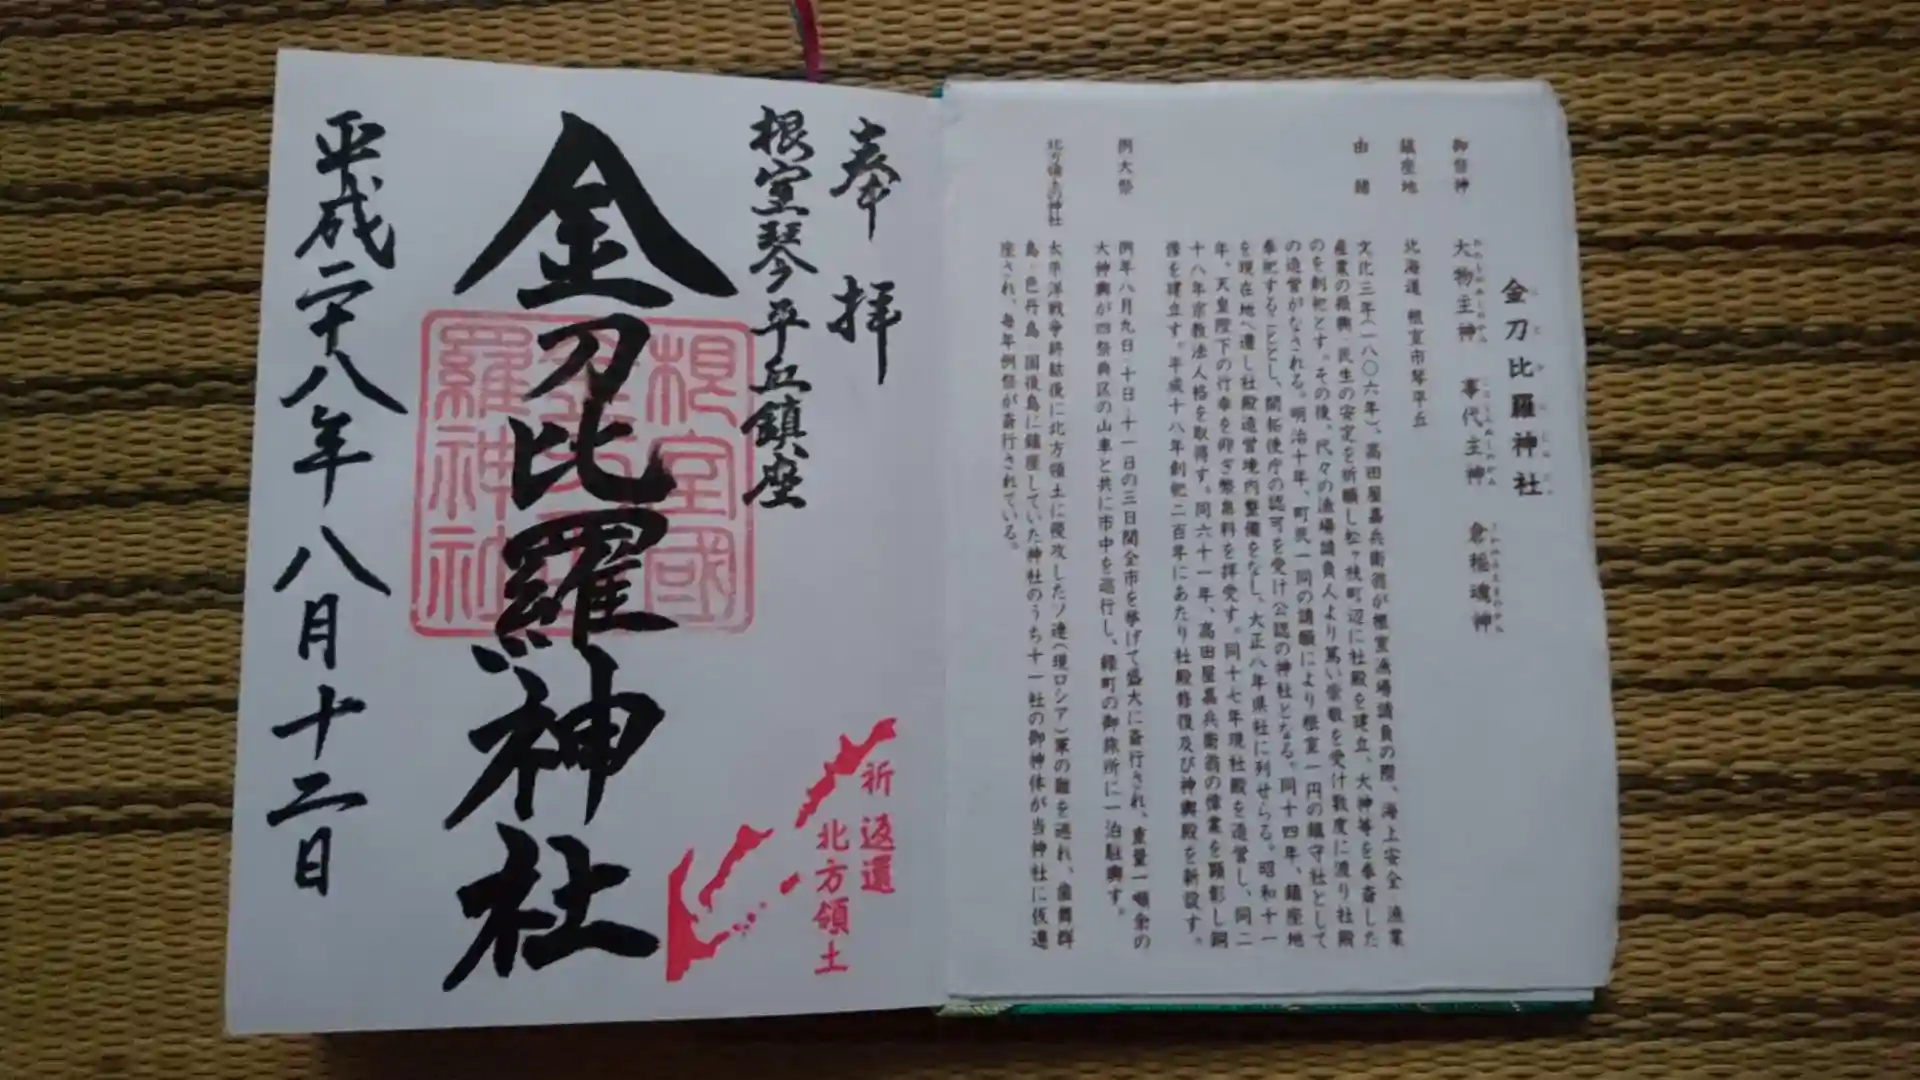 金刀比羅神社
御祭神
大物主神 事代主神 倉稲魂神
鎮座地
北海道 根室市琴平丘
由緒
文化三年(一八〇六年)、高田屋嘉兵衛翁が根室漁場請負の際、海上安全 漁業
産業の振興 民生の安定を祈願し松ヶ枝町辺に社殿を建立、大神等を奉斎した
のを創祀とす。その後、代々の漁場請負人より篤い崇敬を受け数度に渡り社殿
の造営がなされる。明治十年、町民一同の請願により根室一円の鎮守社として
奉祀することとし、開拓使庁の認可を受け公認の神社となる。同十四年、鎮座地
を現在地へ遷し社殿造営境内整備をなし、大正八年県社に列せらる。昭和十一
年、天皇陛下の行幸を仰ぎ幣帛料を拝受す。同十七年現社殿を造営し、同二
十八年宗教法人格を取得す。同六十一年、高田屋嘉兵衛翁の偉業を顕彰し銅
像を建立す。平成十八年創祀二百年にあたり社殿修復及び神輿殿を新設す。
例大祭
例年八月九日・十日・十一日の三日間全市を挙げて盛大に斎行され、重量一噸余の
大神輿が四祭典区の山車と共に市中を巡行し、緑町の御旅所に一泊駐輿す。
北方領土の神社
太平洋戦争終結後に北方領土に侵攻したソ連(現ロシア)軍の難を逃れ、歯舞群
島・色丹島・国後島に鎮座していた神社のうち十一社の御神体が当神社に仮遷
座され、毎年例祭が斎行されている。
奉拝
根室琴平丘鎮座
金刀比羅神社
根室國
羅神社
平成二十八年八月十二日
祈 返還
北方領土